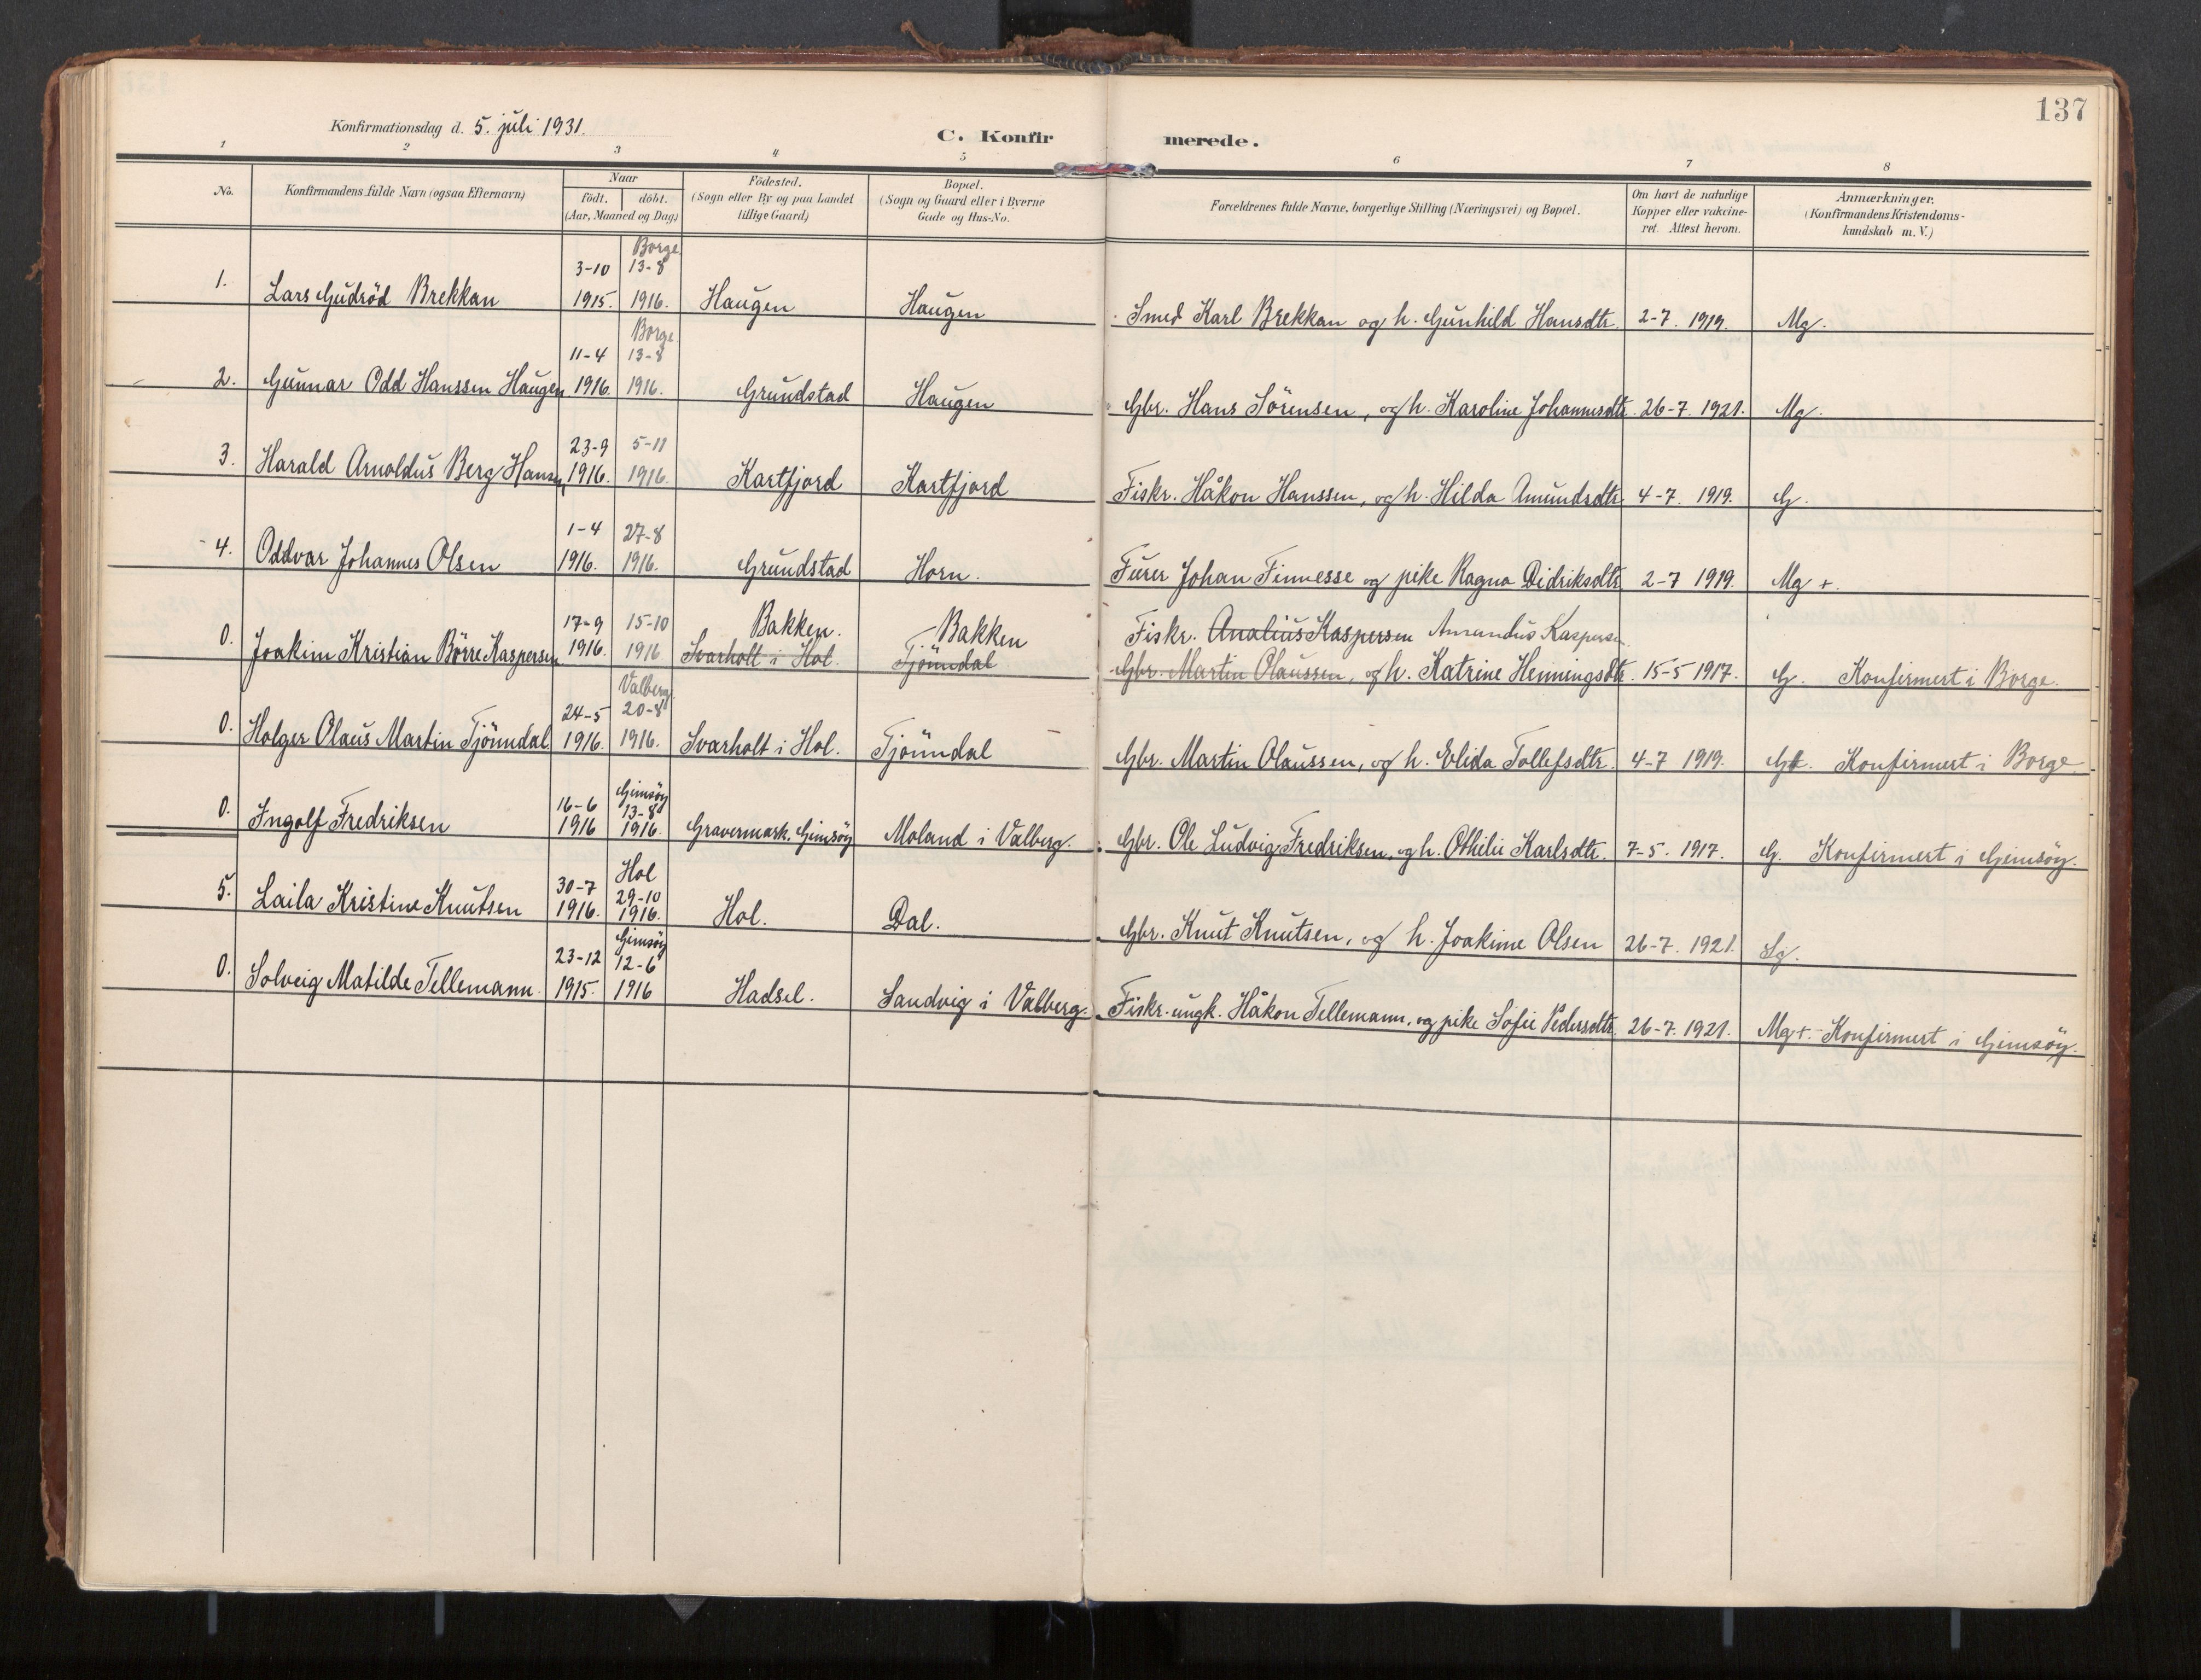 137
Konfirmationsdag d. 5. juli 1931.
C. Konfirmerede.
1 2 3 4 5 6 7 8
No.
Konfirmandens fulde Navn (ogsaa Efternavn)
Naar
födt. döbt.
(Aar, Maaned og Dag)
Födested.
(Sogn eller By og paa Landet
tillige Gaard)
Bopæl.
(Sogn og Gaard eller i Byerne
Gade og Hus-No.
Forældrenes fulde Navne, borgerlige Stilling (Næringsvei) og Bopæl.
Om havt de naturlige
Kopper eller vakcine-
ret. Attest herom.
Anmærkninger.
(Konfirmandens Kristendoms-
kundskab m. V.)
Borge
3-10 13-8
1. Lars Gudröd Brekkan 1915. 1916. Haugen Haugen Smed Karl Brekkan og h. Gunhild Hansdtr. 2-7. 1919. Mg.
Borge
11-4 13-8
2. Gunnar Odd Hanssen Haugen 1916. 1916. Grundstad Haugen Gbr. Hans Sörensen, og h. Karoline Johannesdtr. 26-7. 1921. Mg.
23-9 5-11
3. Harald Arnoldus Berg Hansen 1916. 1916. Kartfjord Kartfjord Fiskr. Håkon Hanssen, og h. Hilda Amundsdtr. 4-7. 1919. G.
1-4 27-8
4. Oddvar Johannes Olsen 1916. 1916. Grundstad Horn. Furer Johan Finnesse og pike Ragna Didriksdtr. 2-7 1919. Mg +.
17-9 15-10 Bakken. Bakken Fiskr. Analius Kaspersen Amandus Kaspersen
0. Joakim Kristian Börre Kaspersen 1916. 1916 Svarholt i Hol. Tjönndal Gbr. Martin Olaussen, og h. Katrine Henningsdtr. 15-5 1917. G. Konfirmert i Borge.
Valberg
24-5 20-8
0. Holger Olaus Martin Tjönndal 1916. 1916. Svarholt i Hol. Tjönndal Gbr. Martin Olaussen, og h. Elida Tollefsdtr. 4-7 1919. G+. Konfirmert i Borge
Gimsöy
16-6 13-8
0. Ingolf Fredriksen 1916 1916. Gravermark. Gimsöy Moland i Valberg. Gbr. Ole Ludvig Fredriksen, og h. Othilie Karlsdtr. 7-5. 1917. G. Konfirmert i Gimsöy.
Hol
30-7 29-10
5. Laila Kristine Knutsen 1916. 1916. Hol. Dal. Gbr. Knut Knutsen, og h. Joakime Olsen 26-7. 1921. Sg.
Gimsöy
23-12 12-6
0. Solveig Matilde Tellemann. 1915. 1916 Hadsel. Sandvig i Valberg. Fiskr. ungk. Håkon Tellemann, og pike Sofie Pedersdtr. 26-7. 1921. Mg+. Konfirmert i Gimsöy.